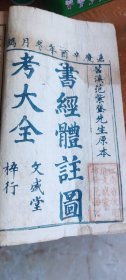 嘉慶辛酉年冬月鐫
苕溪范紫登先生原本
書經體註圖
考大全
文盛堂
梓行